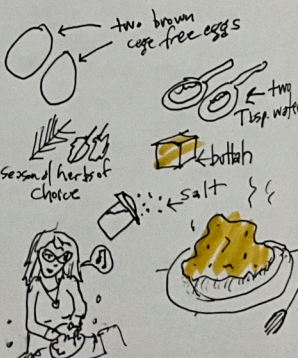 two brown
cage free eggs
two
Tbsp. water
seasonal herbs of
choice
buttah
salt